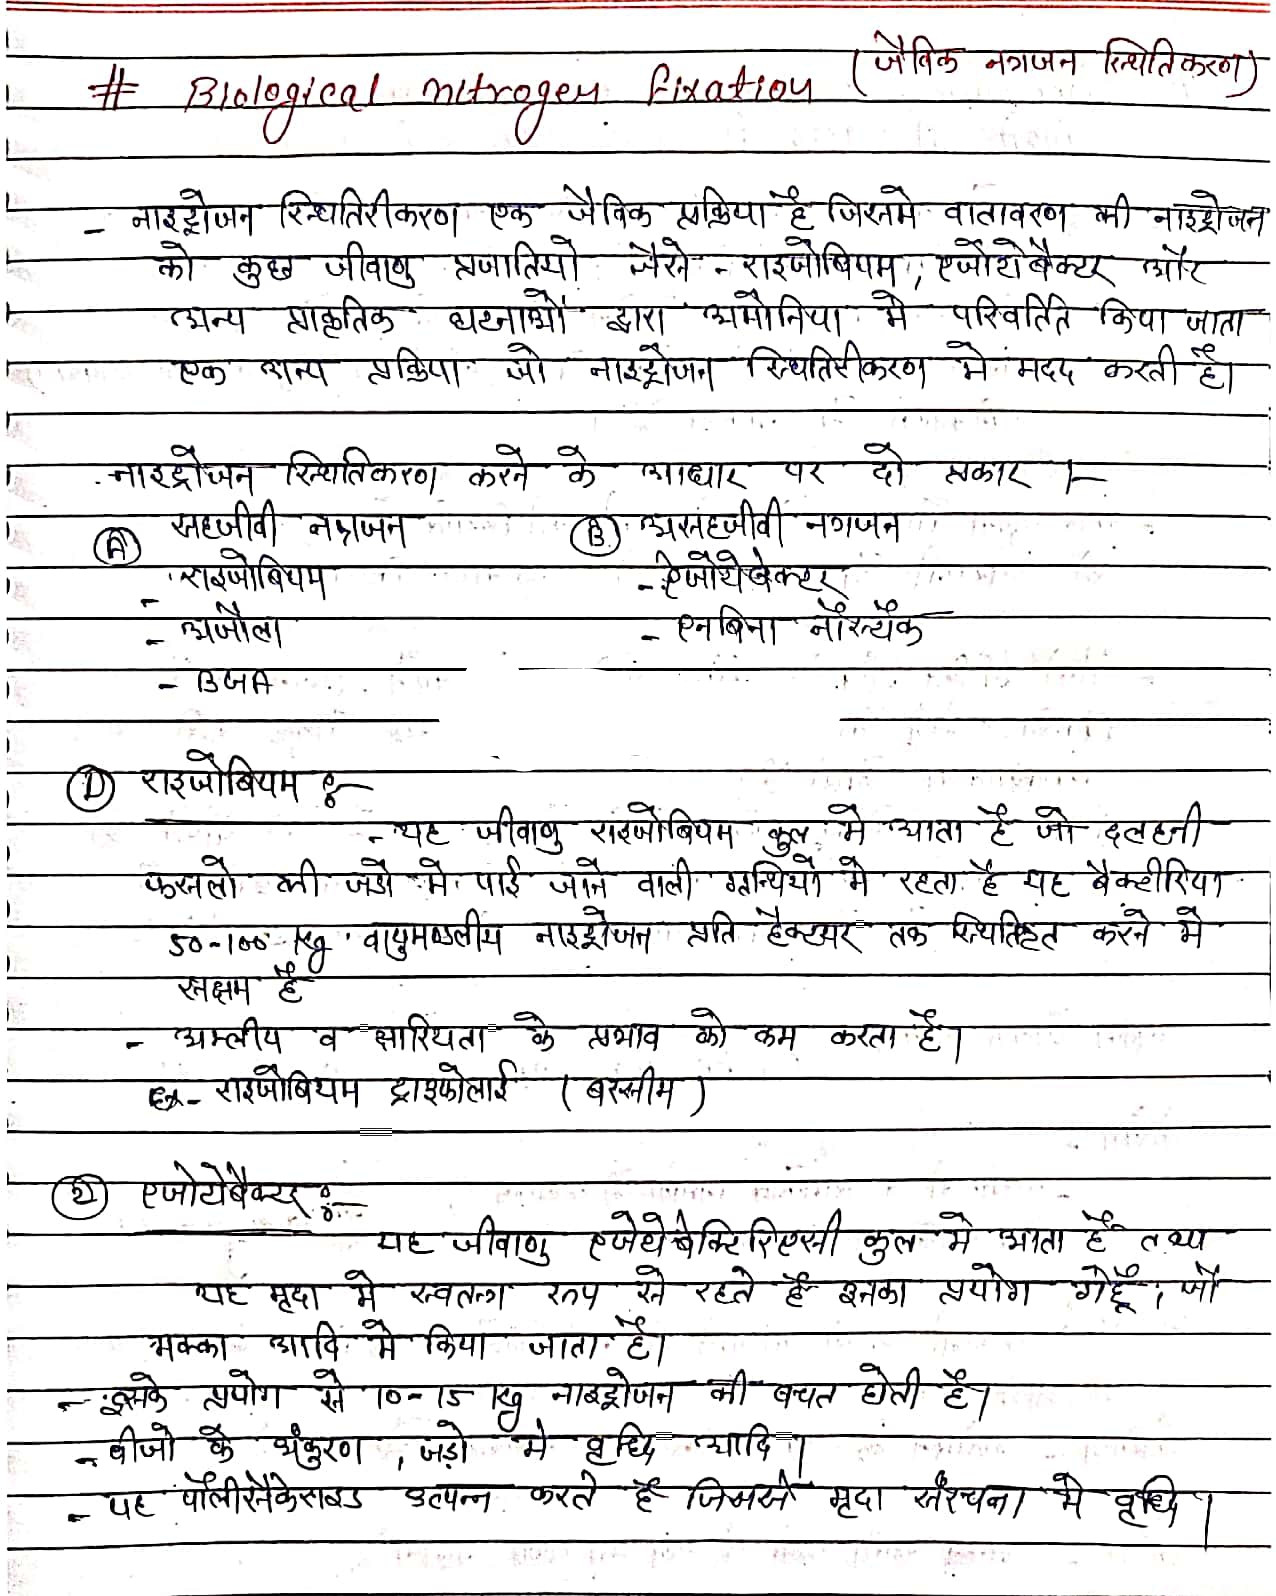 # Biological nitrogen fixation (जैविक नत्रजन स्थितिकरण)
- नाइट्रोजन स्थितिरीकरण एक जैविक प्रक्रिया है जिसमे वातावरण की नाइट्रोजन
को कुछ जीवाणु प्रजातियो जैसे - राइजोबियम, एजोटोबैक्टर और
अन्य प्राकृतिक घटनाओं द्वारा अमोनिया मे परिवर्तित किया जाता
एक अन्य प्रक्रिया जो नाइट्रोजन स्थितिरीकरण मे मदद करती है।
नाइट्रोजन स्थितिकरण करने के आधार पर दो प्रकार :-
(A) सहजीवी नत्रजन (B) असहजीवी नत्रजन
- राइजोबियम - ऐजोटोबेक्टर
- अजौला - एनबिना नौस्त्यैक
- BGA
(1) राइजोबियम :-
- यह जीवाणु राइजोबियम कुल मे आता है जो दलहनी
फसलो की जडो मे पाई जाने वाली ग्रन्थियो मे रहता है यह बैक्टीरिया
50-100 kg वायुमण्डलीय नाइट्रोजन प्रति हैक्टयर तक स्थितिकृत करने मे
सक्षम है
- अम्लीय व क्षारियता के प्रभाव को कम करता है।
Ex- राइजोबियम ट्राइफोलाई (बरसीम)
(2) एजोटोबैक्टर :-
यह जीवाणु एजेटोबैक्टिरिएसी कुल मे आता है तथा
यह मृदा मे स्वतन्त्र रूप से रहते है इनका प्रयोग गेहूँ, जौ
मक्का आदि मे किया जाता है।
- इसके प्रयोग से 10-15 kg नाइट्रोजन की बचत होती है।
- बीजो के अंकुरण, जड़ो मे वृध्दि आदि।
- यह पॉलीसैकेराइड उत्पन्न करते है जिससे मृदा संरचना मे वृध्दि।